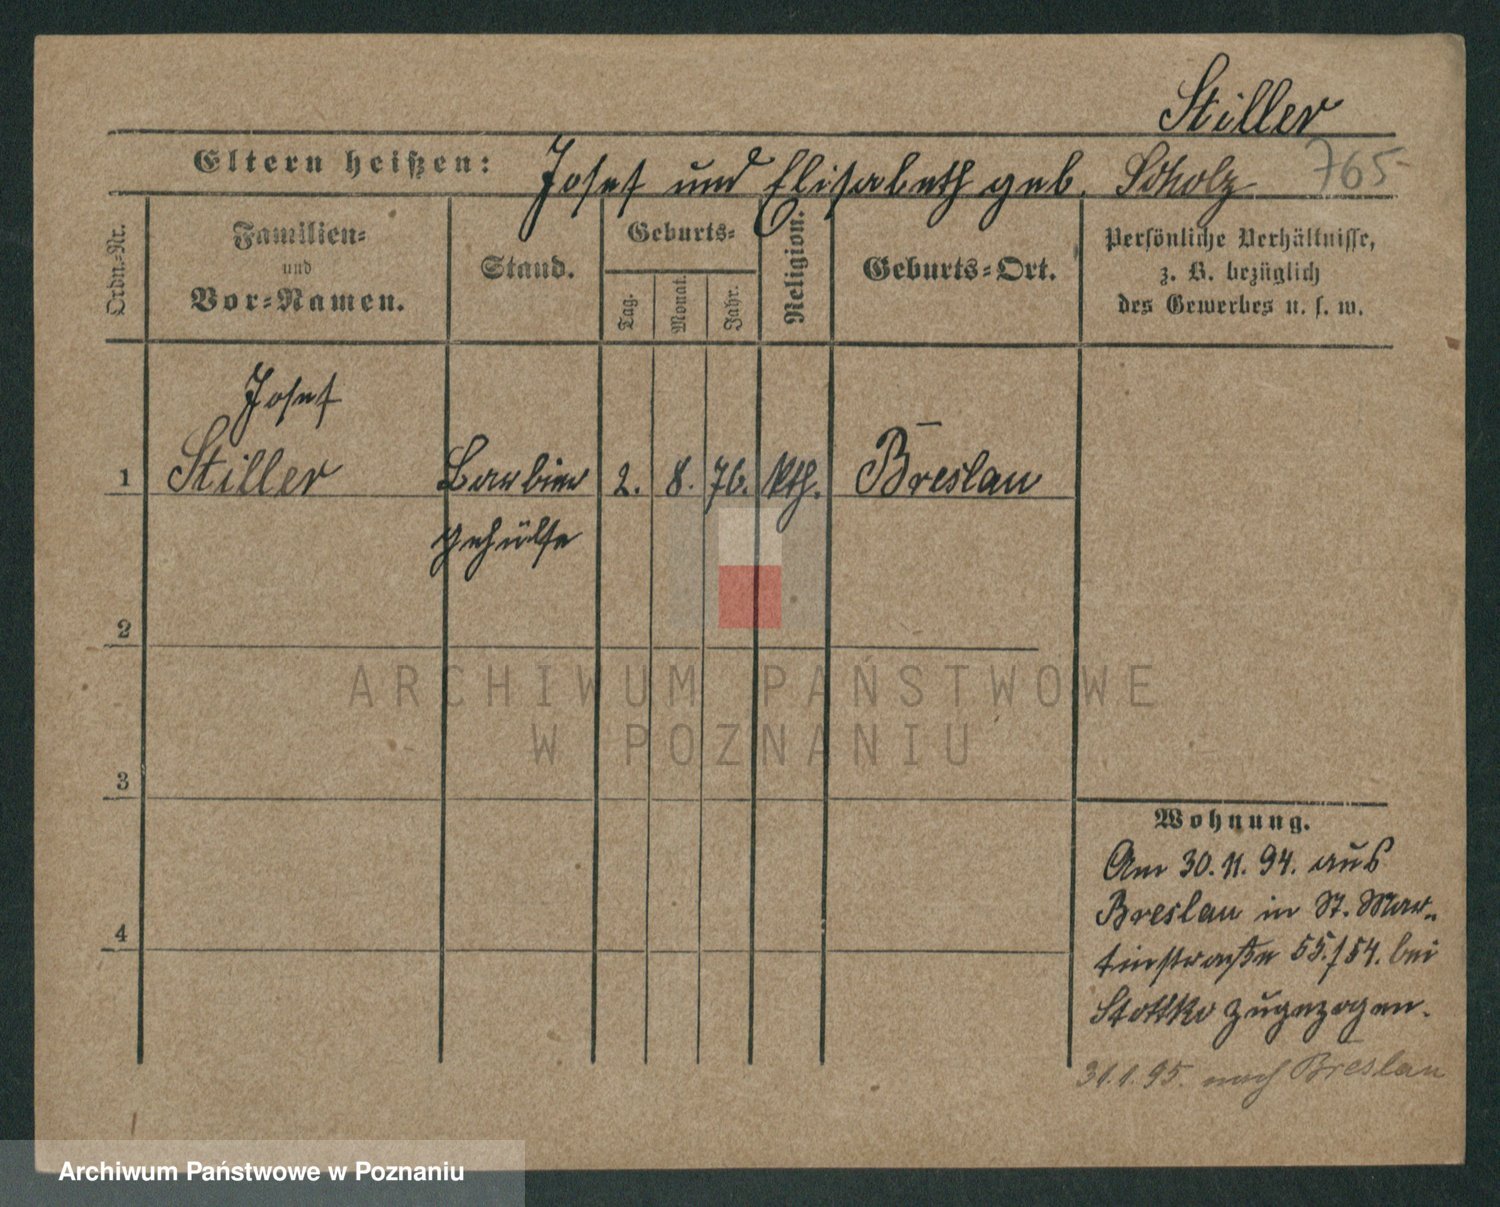 Stiller
Eltern heißen: Josef und Elisabeth geb. Scholz 765
Ordn.-Nr.
Familien-
und
Vor-Namen.
Stand.
Geburts-
Tag.
Monat.
Jahr.
Religion.
Geburts-Ort.
Persönliche Verhältnisse,
z. B. bezüglich
des Gewerbes u. s. w.
Josef
1 Stiller Barbier 2. 8. 76. kth. Breslau
gehülfe
2
3
4
ARCHIWUM PAŃSTWOWE
W POZNANIU
Wohnung.
Am 30.11.94. aus
Breslau in St. Mar-
tinstraße 55./54. bei
zugezogen.
31.1.95. nach Breslau
Archiwum Państwowe w Poznaniu